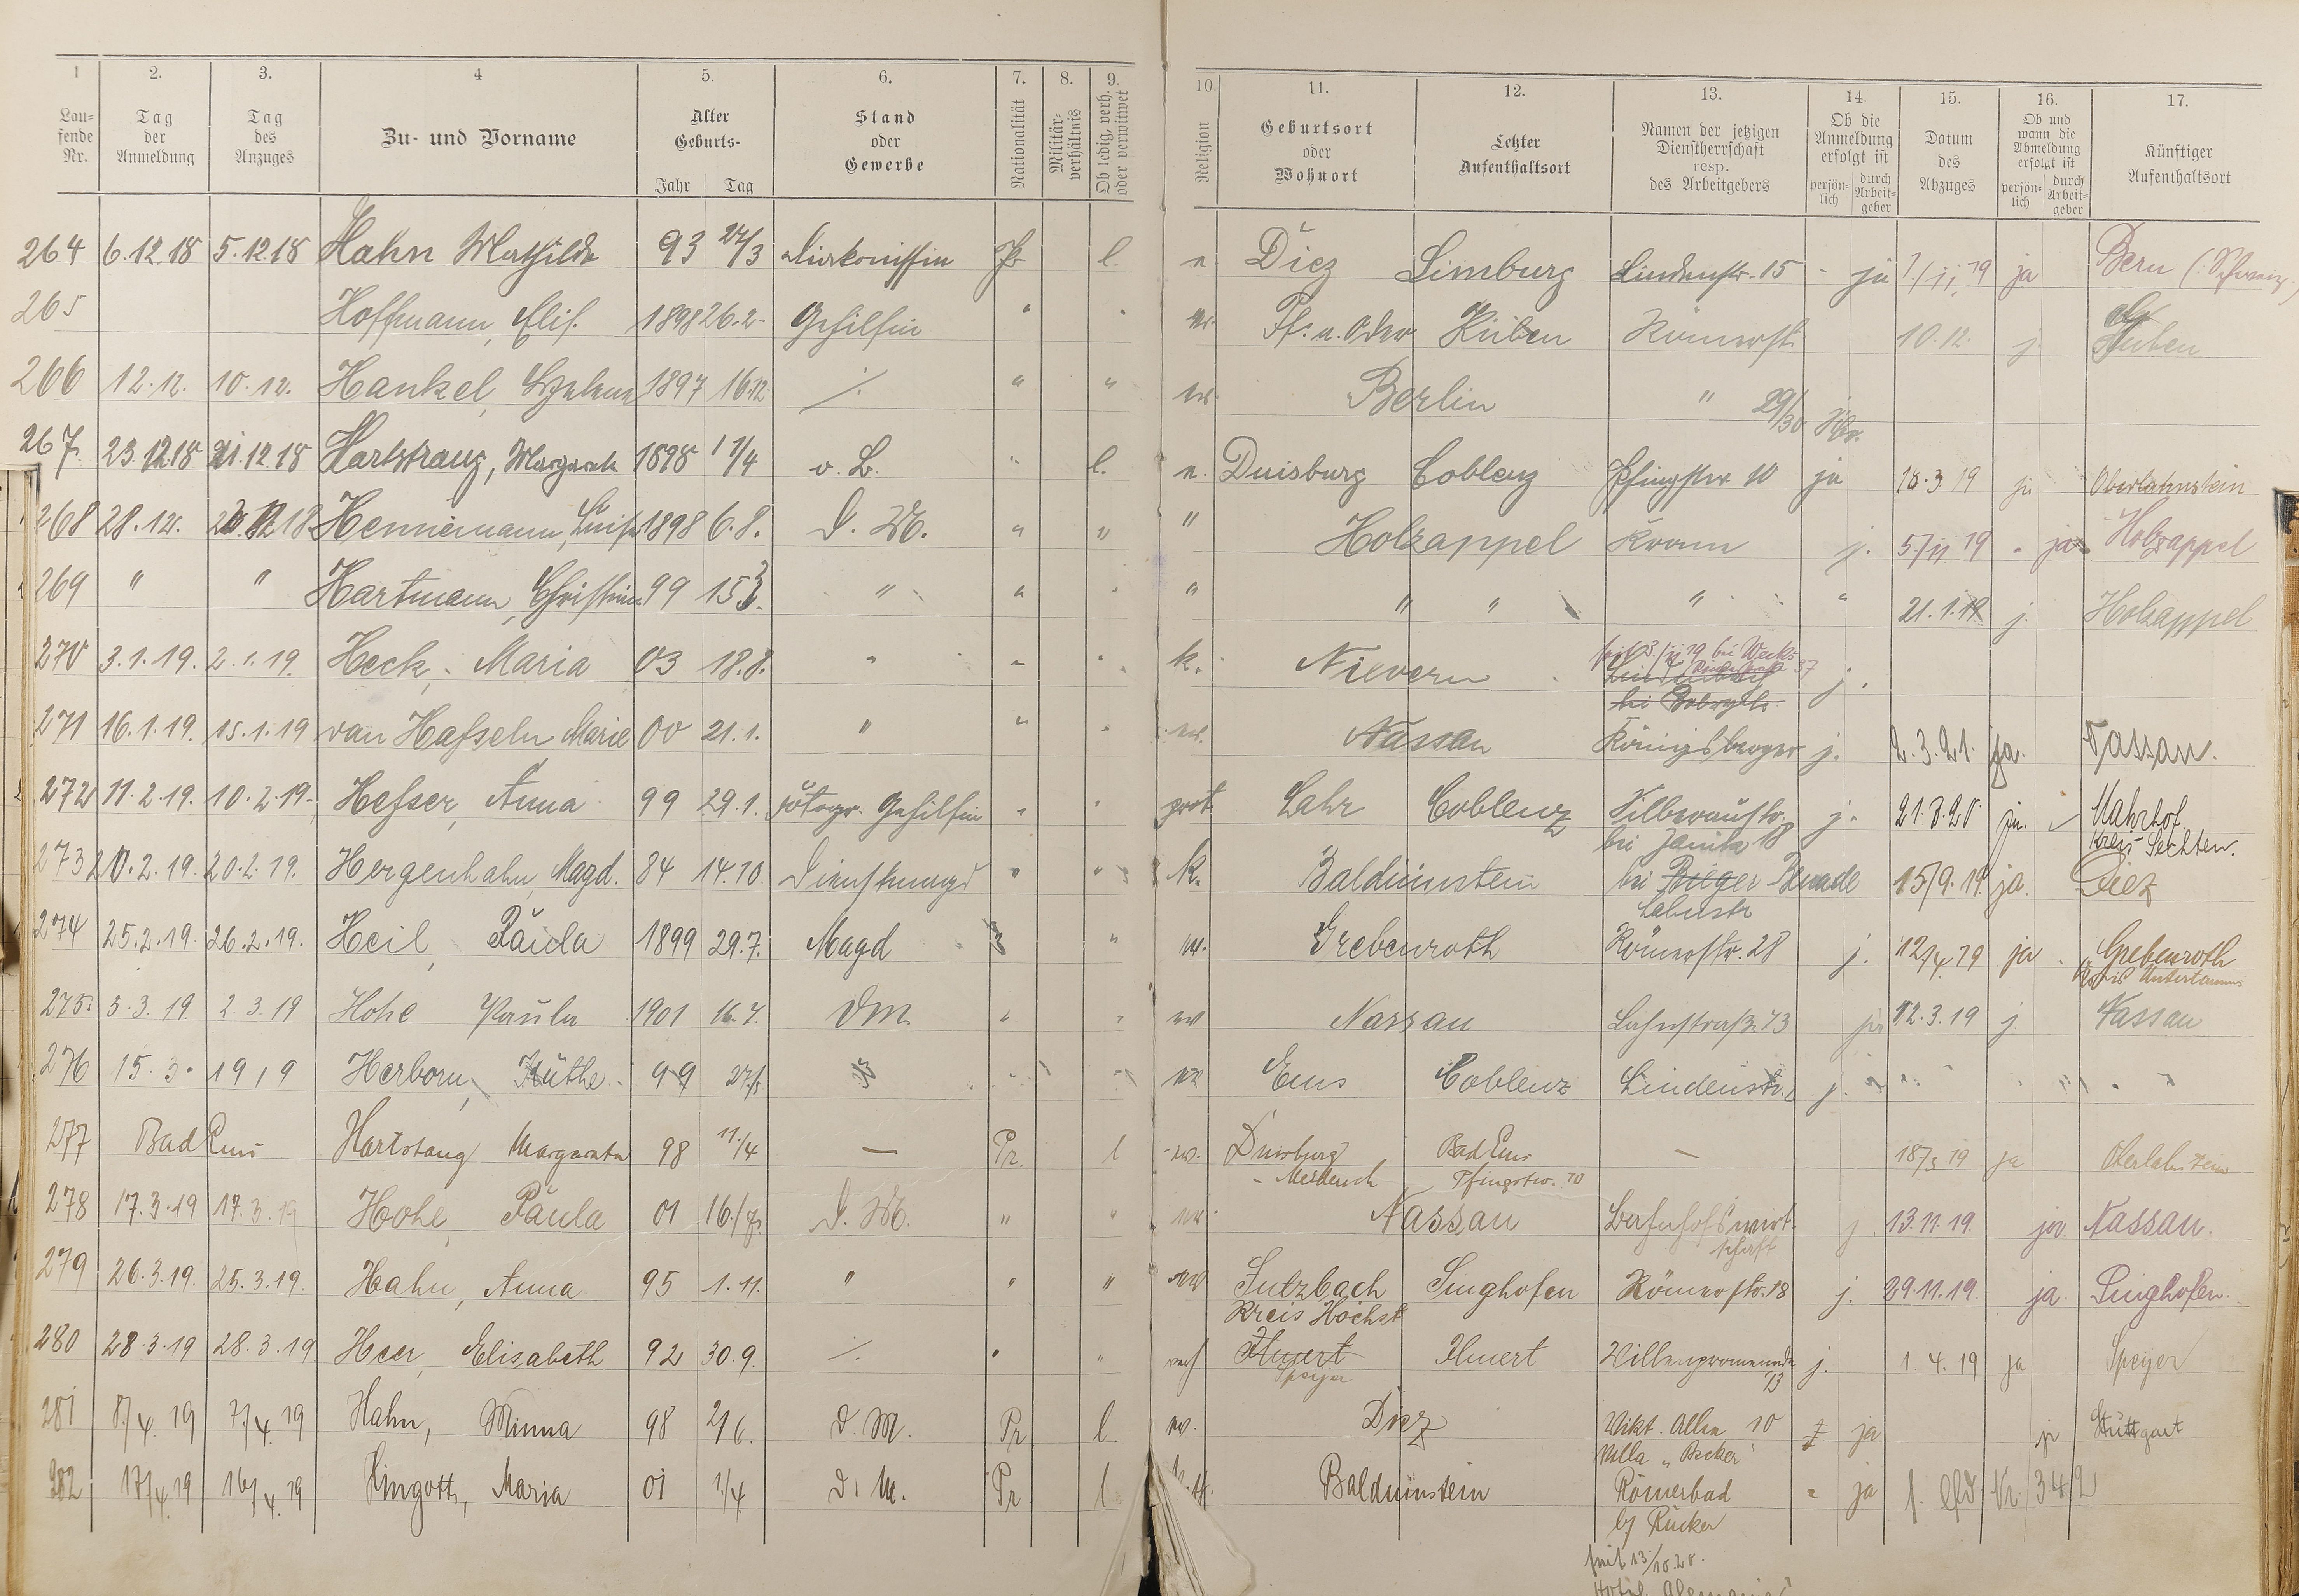 1 2. 3. 4 5. 6. 7. 8. 9. 10. 11. 12. 13. 14. 15. 16. 17.
Lau-
fende
Nr.
Tag
der
Anmeldung
Tag
des
Anzuges
Zu- und Vorname
Alter
Geburts-
Jahr Tag
Stand
oder
Gewerbe
Nationalität
Militär-
verhältnis
Ob ledig, verh.
oder verwitwet
Religion
Geburtsort
oder
Wohnort
Letzter
Aufenthaltsort
Namen der jetzigen
Dienstherrschaft
resp.
des Arbeitgebers
Ob die
Anmeldung
erfolgt ist
persön-
lich
durch
Arbeit-
geber
Datum
des
Abzuges
Ob und
wann die
Abmeldung
erfolgt ist
persön-
lich
durch
Arbeit-
geber
Künftiger
Aufenthaltsort
264 6.12.18 5.12.18 Hahn Mathilde 93 27/3 Diakonissin Pr l. Diez Limburg Lindenstr. 15 - ja 1/11.19 ja Bern (Schweiz)
265 Hoffmann, Elis. 1898 26.2. Gehilfin " " Ff. a. Oder Römerstr. 10.12. j.
266 12.12. 10.12. Hankel 1897 16.12 ./. " " ev. Berlin " 29/30
267 23.12.18 21.12.18 Hartstrang, Margarete 1898 11/4 o. B. " l. Duisburg Coblenz Pfingstw 10 ja 18.3.19 ja Oberlahnstein
268 28.12. 12 18 Hennemann, Luise 1898 6.8. D. M. " " " Holzappel j. 5/11 19 " ja Holzappel
269 " " Hartmann, Christine 99 15.3. " " " " " " " " 21.1.19 j. Holzappel
270 3.1.19. 2.1.19. Heck, Maria 03 18.8. " " " k. Nievern j.
271 16.1.19. 15.1.19 van Hasseln Marie 00 21.1. " " " ev. Nassau Königsberger j. 2.3.21. ja. Nassau.
272 11.2.19. 10.2.19. Hesser, Anna 99 29.1. fotogr. Gehilfin " " prot Lahr Coblenz Silberaustr. j. 21.8.20 ja. Mahrhof.
bei Janik 18 Kreis Sechten.
273 20.2.19. 20.2.19. Hergenhahn, Magd. 84 14.10. Dienstmagd " " k. Balduinstein bei Bieger Benade 15/9.19. ja. Diez
Lahnstr
274 25.2.19. 26.2.19. Heil, Paula 1899 29.7. Magd " ev. Grebenroth Römerstr. 28 j. 12/4 19 ja. Grebenroth
Kreis Untertaunus
275 5.3.19. 2.3.19 Hohe Paula 1901 16.7. DM " " ev Nassau Lahnstraße 73 ja 12.3.19 j Nassau
276 15.3. 1919 Herborn, Käthe 99 ev Ems Coblenz Lindenstr. j.
277 Bad Ems Hartstang Margareta 98 11./4 — Pr. l ev. Duisburg Bad Ems — 18/3 19 ja Oberlahnstein
- Meiderich Pfingstw. 10
278 17.3.19 17.3.19 Hohe, Paula 01 16./7. D. M. " " ev. Nassau Bahnhofswirt- j 13.11.19. ja. Nassau.
schaft
279 26.3.19. 25.3.19. Hahn, Anna 95 1.11. " " " ev Sulzbach Singhofen Römerstr. 18 j. 29.11.19. ja. Singhofen.
Kreis Höchst
280 28.3.19 28.3.19. Heer, Elisabeth 92 30.9. ./. " " Wilhelmspromenade j. 1.4.19 ja Speyer
Speyer 13
281 8/4 19 7/4 19 Hahn, Minna 98 2/6. D. M. Pr l. ev. Diez Vikt. Allee 10 ja ja Stuttgart
Villa „Becker"
282 17/4 19 16/4 19 Hingott, Maria 01 1./4 D. M. Pr l. Balduinstein Römerbad " ja f. lfd. Nr. 342
bj Rücker
seit 13/10.20.